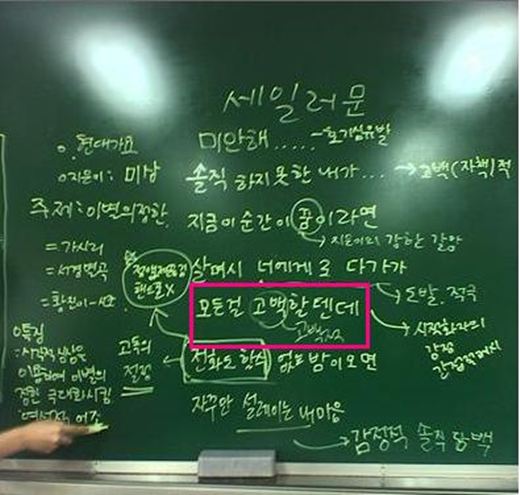 세일러문
o. 현대가요
미안해..... → 호기심유발
o 지은이: 미상
솔직 하지 못한 내가... → 고백(자책)적
주제: 이별의 정한
지금 이 순간이 꿈이라면
→ 지은이의 강한 갈망
= 가시리
= 서경별곡
= 황진이-시조
살며시 너에게로 다가가
→ 도발. 적극
모든걸 고백할텐데
고백적
→ 시적화자의
감정
간접제시
전화도 할수 없는 밤이오면
고독의
절정
o 특징
: 시간적 배경을
이용하여 이별의
정한 극대화시킴
자꾸만 설레이는 내마음
→ 감정적 솔직 담백